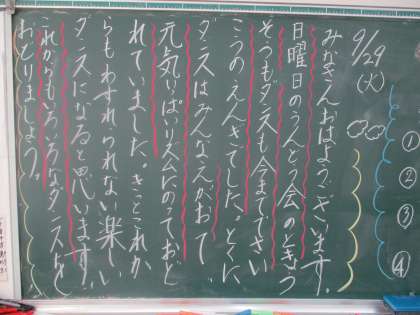 9/29
(火)
みなさんおはようございます。
日曜日のうんどう会のときょう
そうもダンスも今までさい
こうのえんぎでした。とくに
ダンスはみんなえがおで、
元気いっぱいリズムにのっておど
れていました。きっとこれか
らもわすれられない楽しい
ダンスになると思います。
これからもいろいろなダンスを
おどりましょう。
①
②
③
④